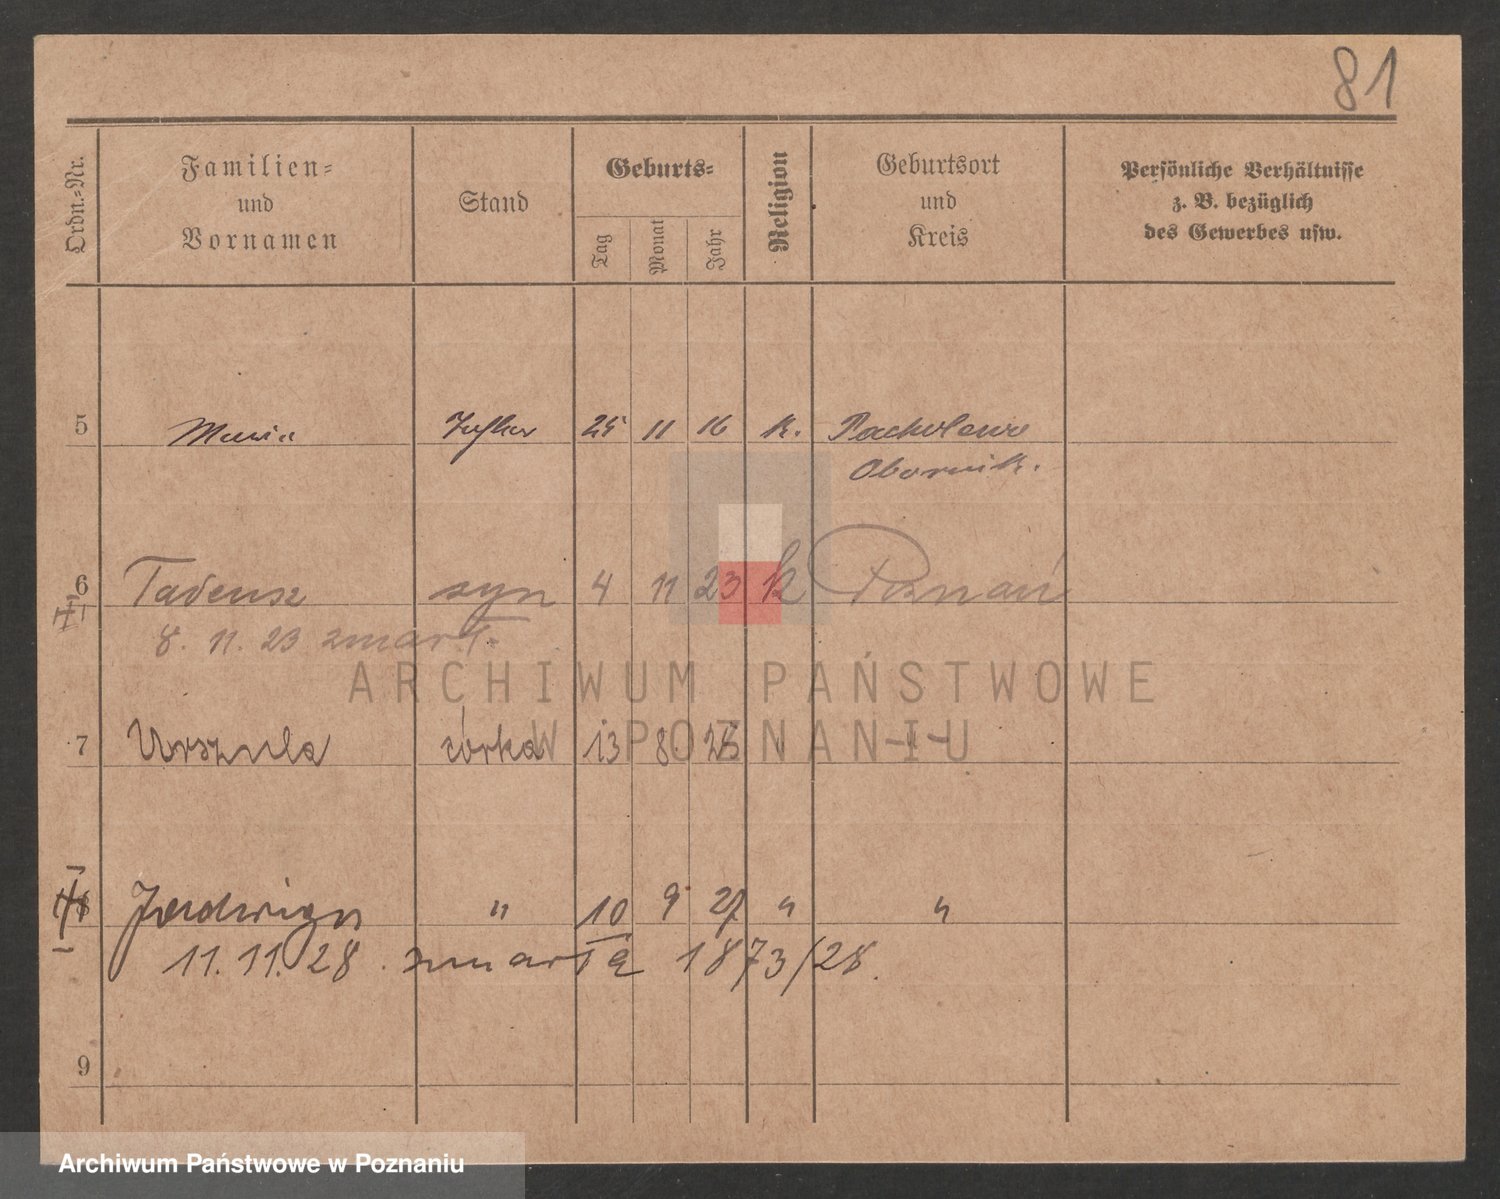 81
Ordn.-Nr.
Familien-
und
Vornamen
Stand
Geburts-
Tag
Monat
Jahr
Religion
Geburtsort
und
Kreis
Persönliche Verhältnisse
z. B. bezüglich
des Gewerbes usw.
5 Maria 25 11 16 k. Pacholewo
Obornik.
6 Tadeusz syn 4 11 23 k Poznań
8. 11. 23 zmarł.
7 Urszula córka 13 8. " -"-
8 Jadwiga " 10 9 27 " "
11. 11. 28. zmarła 1873/28.
9
ARCHIWUM PAŃSTWOWE
W POZNANIU
Archiwum Państwowe w Poznaniu